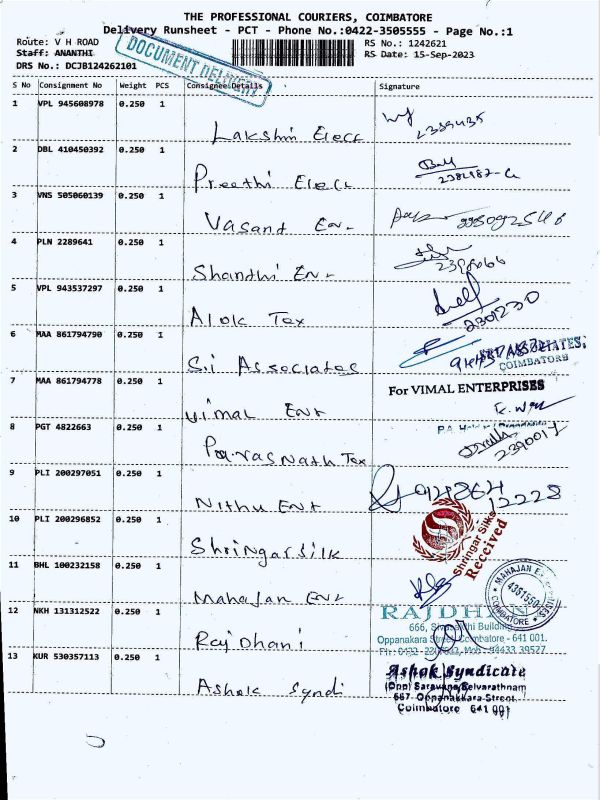 THE PROFESSIONAL COURIERS, COIMBATORE
Delivery Runsheet - PCT - Phone No.:0422-3505555 - Page No.:1
Route: V H ROAD RS No.: 1242621
Staff: ANANTHI RS Date: 15-Sep-2023
DRS No.: DCJB124262101
DOCUMENT DELIVERY
S No Consignment No Weight PCS Consignee Details Signature
1 VPL 945608978 0.250 1
Lakshmi Elecc 2389435
2 DBL 410450392 0.250 1
Preethi Elecc
3 VNS 505060139 0.250 1
Vasand Ent
4 PLN 2289641 0.250 1
Shandhi Ent
5 VPL 943537297 0.250 1
Alok Tex 2301230
6 MAA 861794790 0.250 1
S.i Associates ASSOCIATES,
COIMBATORE
7 MAA 861794778 0.250 1 For VIMAL ENTERPRISES
Vimal Ent
8 PGT 4822663 0.250 1
Parasnath Tex 2390017
9 PLI 200297051 0.250 1
Nithu Ent 94864 12228
10 PLI 200296852 0.250 1
Shringar Silk Shringar Silks
Received
11 BHL 100232158 0.250 1
Mahajan Ent MAHAJAN
4351550
COIMBATORE
12 NKH 131312522 0.250 1 RAJDHANI
Rajdhani 666, Building
Oppanakara Street, Coimbatore - 641 001.
94433 39527
13 KUR 530357113 0.250 1 Ashok Syndicate
Ashok Syndi (Opp) Saravana Selvarathnam
667 Oppanakkara Street
Coimbatore 641 001